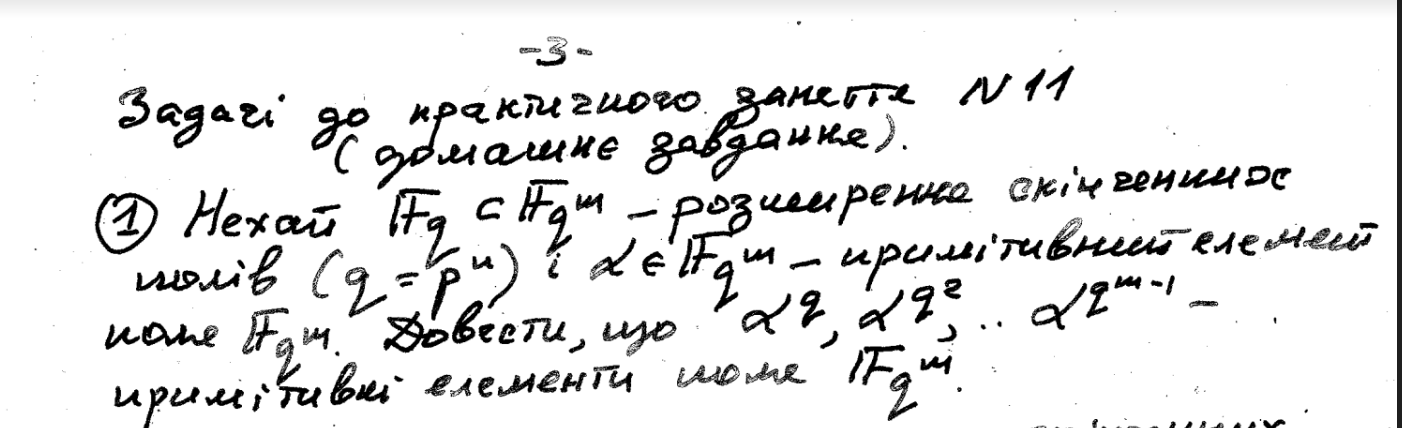 -3-
Задачі до практичного заняття N 11
(домашнє завдання).
① Нехай 𝔽_q ⊂ 𝔽_{q^m} – розширення скінченних
полів (q = p^n) і α ∈ 𝔽_{q^m} – примітивний елемент
поля 𝔽_{q^m}. Довести, що α^q, α^{q^2}, .. α^{q^{m-1}} –
примітивні елементи поля 𝔽_{q^m}.